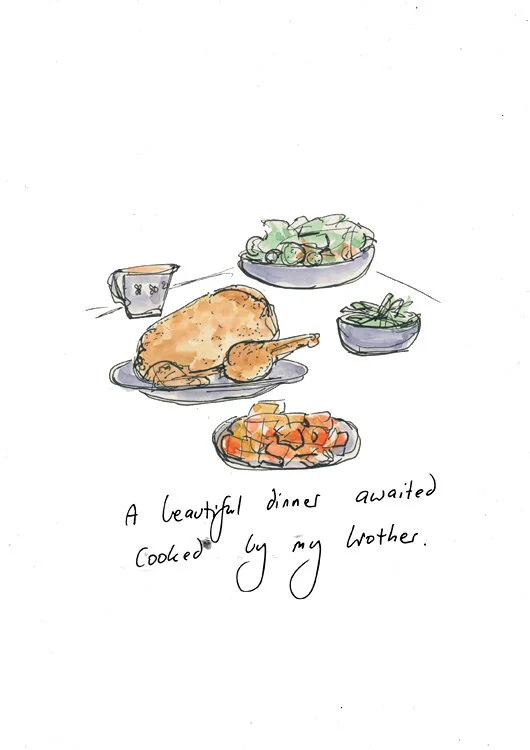 A beautiful dinner awaited
cooked by my brother.